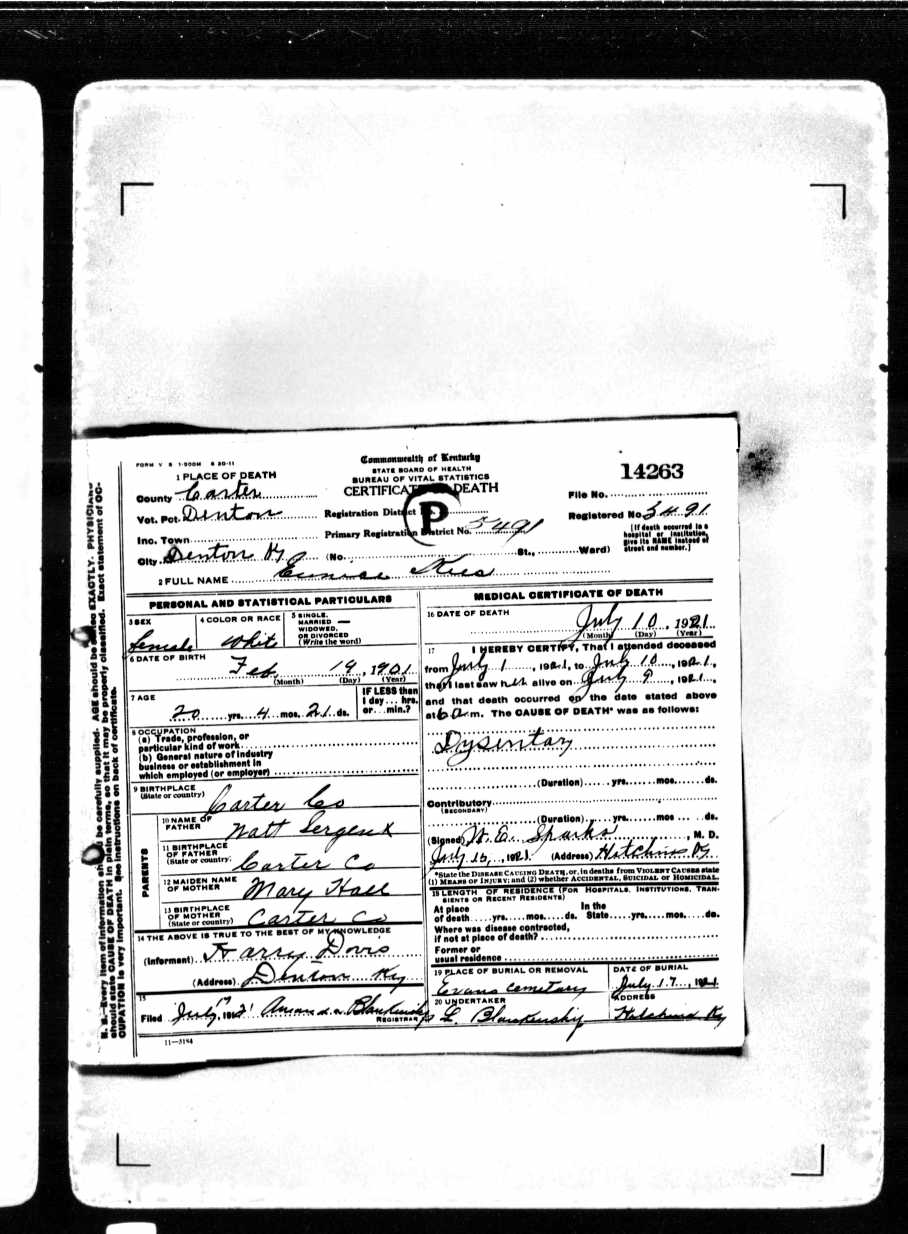 FORM V S 1-500M 8 20-11
Commonwealth of Kentucky
STATE BOARD OF HEALTH
BUREAU OF VITAL STATISTICS
CERTIFICATE OF DEATH
14263
1 PLACE OF DEATH
County Carter
Vot. Pct. Denton
Inc. Town
City Denton Ky (No. St., Ward)
Registration District No.
P
Primary Registration District No. 5491
File No.
Registered No. 5491
[If death occurred in a hospital or institution, give its NAME instead of street and number.]
2 FULL NAME Eunice
PERSONAL AND STATISTICAL PARTICULARS
3 SEX
Female
4 COLOR OR RACE
White
5 SINGLE, MARRIED WIDOWED, OR DIVORCED (Write the word)
6 DATE OF BIRTH
Feb 19, 1901
(Month) (Day) (Year)
7 AGE
20 yrs. 4 mos. 21 ds.
IF LESS than 1 day... hrs. or... min.?
8 OCCUPATION
(a) Trade, profession, or
particular kind of work
(b) General nature of industry
business or establishment in
which employed (or employer)
9 BIRTHPLACE
(State or country)
Carter Co
PARENTS
10 NAME OF FATHER
Natt
11 BIRTHPLACE OF FATHER (State or country)
Carter Co
12 MAIDEN NAME OF MOTHER
Mary Hall
13 BIRTHPLACE OF MOTHER (State or country)
Carter Co
14 THE ABOVE IS TRUE TO THE BEST OF MY KNOWLEDGE
(Informant) Harry Davis
(Address) Denton Ky
15
Filed July 17 1921
REGISTRAR
11—3184
MEDICAL CERTIFICATE OF DEATH
16 DATE OF DEATH
July 10, 1921
(Month) (Day) (Year)
17 I HEREBY CERTIFY, That I attended deceased
from July 1, 1921, to July 10, 1921,
that I last saw her alive on July 9, 1921,
and that death occurred on the date stated above
at 6 a m. The CAUSE OF DEATH* was as follows:
Dysentary
(Duration) yrs. mos. ds.
Contributory
(SECONDARY)
(Duration) yrs. mos. ds.
(Signed) W. E. Sparks, M. D.
July 16, 1921 (Address) Hitchins Ky
*State the DISEASE CAUSING DEATH, or, in deaths from VIOLENT CAUSES state
(1) MEANS OF INJURY; and (2) whether ACCIDENTAL, SUICIDAL or HOMICIDAL.
18 LENGTH OF RESIDENCE (FOR HOSPITALS, INSTITUTIONS, TRANSIENTS OR RECENT RESIDENTS)
At place of death yrs. mos. ds. In the State yrs. mos. ds.
Where was disease contracted,
if not at place of death?
Former or
usual residence
19 PLACE OF BURIAL OR REMOVAL
Evans Cemetary
DATE OF BURIAL
July 17, 1921
20 UNDERTAKER
L. Blankenship
ADDRESS
Ky
N. B.—Every item of information should be carefully supplied. AGE should be stated EXACTLY. PHYSICIANS
should state CAUSE OF DEATH in plain terms, so that it may be properly classified. Exact statement of OC-
CUPATION is very important. See instructions on back of certificate.